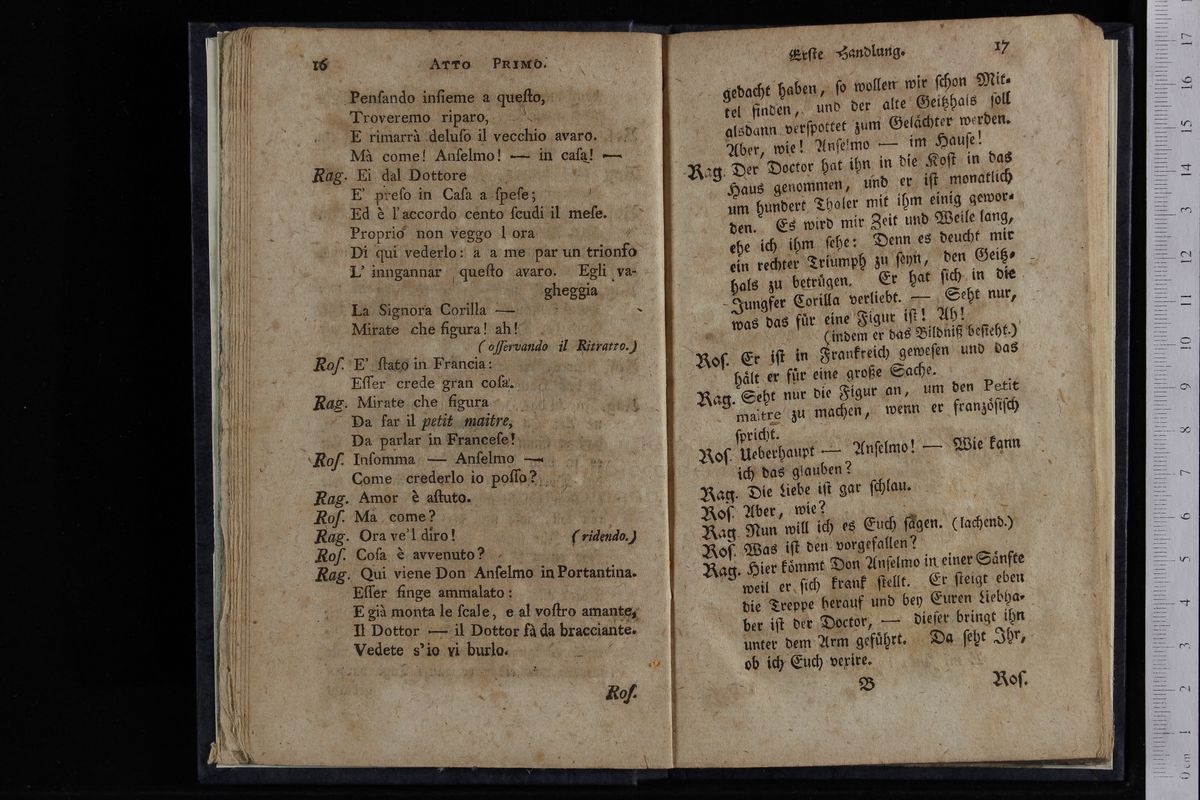 16
ATTO PRIMO.
Penſando inſieme a queſto,
Troveremo riparo,
E rimarrà deluſo il vecchio avaro.
Mà come! Anſelmo! — in caſa! —
Rag. Ei dal Dottore
E' preſo in Caſa a ſpeſe;
Ed è l'accordo cento ſcudi il meſe.
Proprio non veggo l ora
Di qui vederlo: a a me par un trionfo
L' inngannar queſto avaro. Egli va-
gheggia
La Signora Corilla —
Mirate che figura! ah!
(oſſervando il Ritratto.)
Roſ. E' ſtato in Francia:
Eſſer crede gran coſa.
Rag. Mirate che figura
Da far il petit maitre,
Da parlar in Franceſe!
Roſ. Inſomma — Anſelmo —
Come crederlo io poſſo?
Rag. Amor è aſtuto.
Roſ. Ma come?
Rag. Ora ve'l diro! (ridendo.)
Roſ. Coſa è avvenuto?
Rag. Qui viene Don Anſelmo in Portantina.
Eſſer finge ammalato:
E già monta le ſcale, e al voſtro amante,
Il Dottor — il Dottor fà da bracciante.
Vedete s'io vi burlo.
Roſ.
Erſte Handlung.
17
gedacht haben, ſo wollen wir ſchon Mit-
tel finden, und der alte Geitzhals ſoll
alsdann verſpottet zum Gelächter werden.
Aber, wie! Anſelmo — im Hauſe!
Rag. Der Doctor hat ihn in die Koſt in das
Haus genommen, und er iſt monatlich
um hundert Thaler mit ihm einig gewor-
den. Es wird mir Zeit und Weile lang,
ehe ich ihm ſehe: Denn es deucht mir
ein rechter Triumph zu ſeyn, den Geitz-
hals zu betrügen. Er hat ſich in die
Jungfer Corilla verliebt. — Seht nur,
was das für eine Figur iſt! Ah!
(indem er das Bildniß beſieht.)
Roſ. Er iſt in Frankreich geweſen und das
hält er für eine große Sache.
Rag. Seht nur die Figur an, um den Petit
maitre zu machen, wenn er franzöſiſch
ſpricht.
Roſ. Ueberhaupt — Anſelmo! — Wie kann
ich das glauben?
Rag. Die Liebe iſt gar ſchlau.
Roſ. Aber, wie?
Rag. Nun will ich es Euch ſagen. (lachend.)
Roſ. Was iſt den vorgefallen?
Rag. Hier kömmt Don Anſelmo in einer Sänfte
weil er ſich krank ſtellt. Er ſteigt eben
die Treppe herauf und bey Euren Liebha-
ber iſt der Doctor, — dieſer bringt ihn
unter dem Arm geführt. Da ſeht Ihr,
ob ich Euch vexire.
B
Roſ.
0 cm 1 2 3 4 5 6 7 8 9 10 11 12 13 14 15 16 17